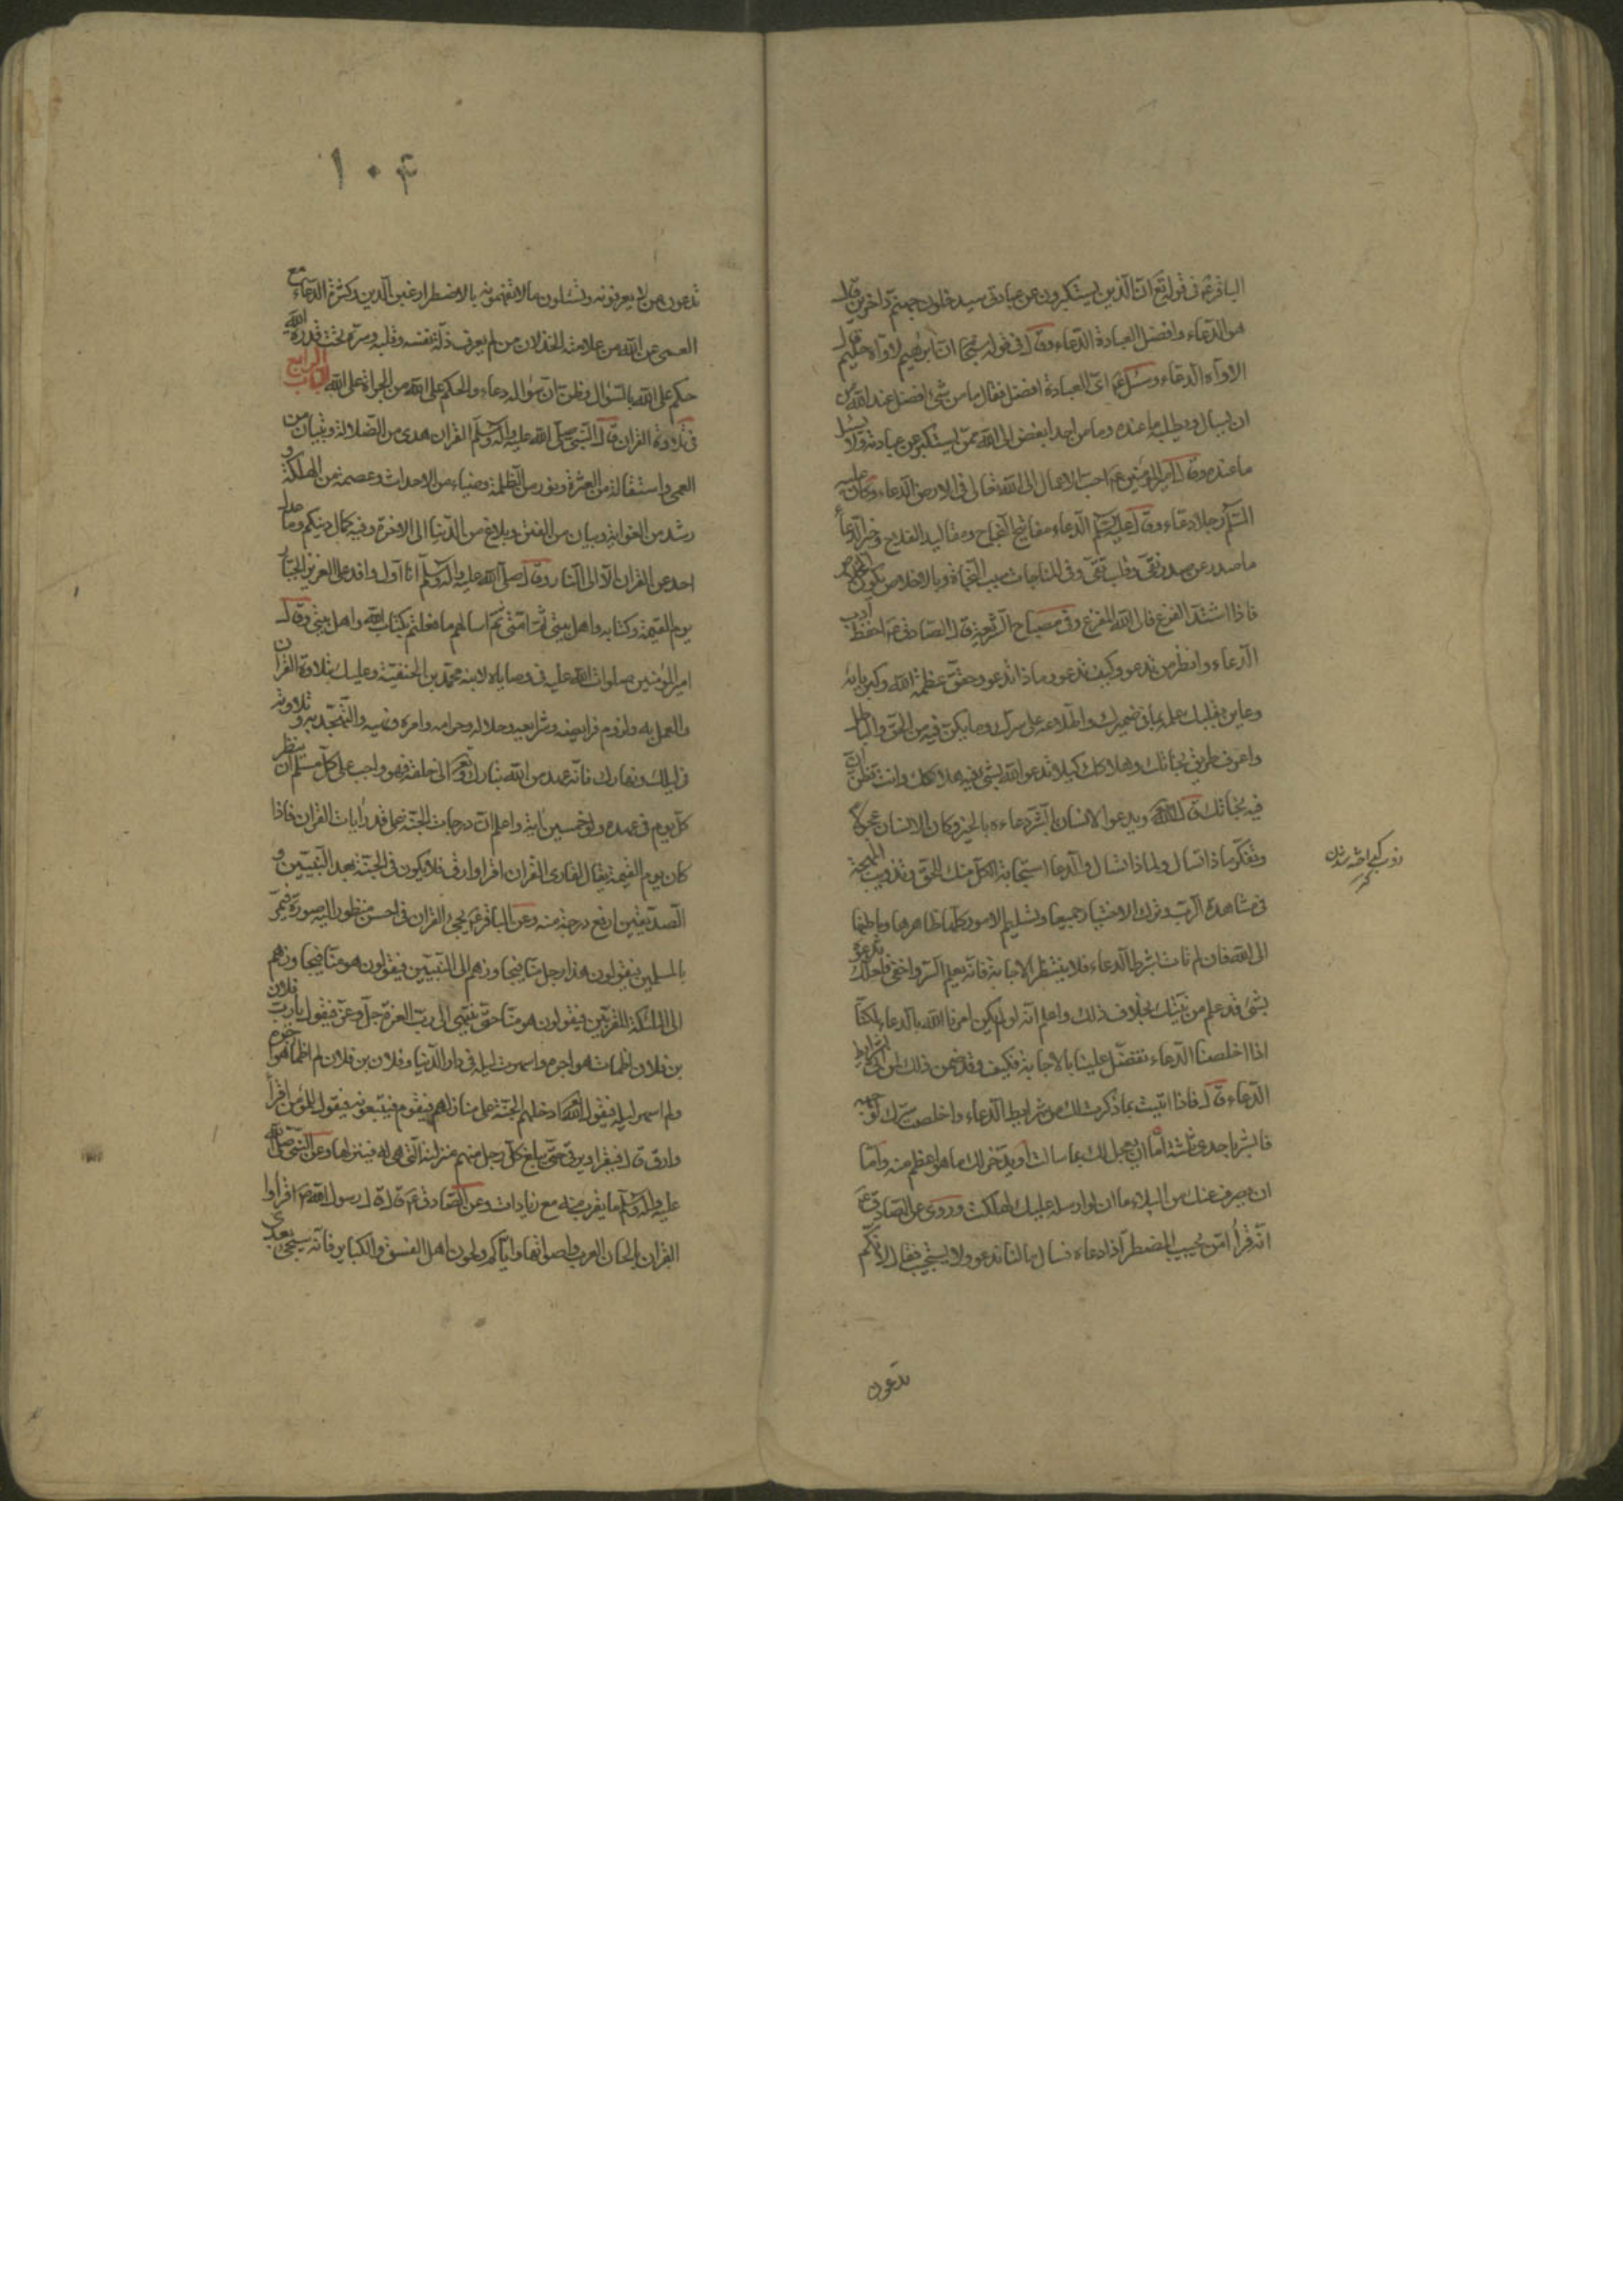 الباقر ع في قوله تع ان الذين يستكبرون عن عبادتي سيدخلون جهنم داخرين قال
هو الدعاء وافضل العبادة الدعاء وقال في قوله ان ابرهيم لاواه حليم قال
الاواه الدعاء وسئل ع اى العبادة افضل فقال ما من شئ افضل عند الله من
ان يسال ويطلب ما عنده وما من احد ابغض الى الله ممن يستكبر عن عبادته ولا يسئل
ما عنده وقال امير المؤمنين ع احب الاعمال الى الله تعالى في الارض الدعاء وكان عليه
السلم رجلا دعاء وقال عليه السلم الدعاء مفاتيح النجاح ومقاليد الفلاح وخير الدعاء
ما صدر عن صدر نقى وقلب تقى وفى المناجات سبب النجاة وبالاخلاص يكون الخلاص
فاذا اشتد الفزع فالى الله المفزع وفى مصباح الشريعة قال الصادق ع احفظ آداب
الدعاء وانظر من تدعو وكيف تدعو وماذا تدعو وحقق عظمة الله وكبريائه
وعاين بقلبك علمه بما في ضميرك واطلاعه على سرك وما يكن فيه من الحق والباطل
واعرف طريق نجاتك وهلاكك كيلا تدعو الله بشئ فيه هلاكك وانت تظن ان
فيه نجاتك قال الله ويدعو الانسان بالشر دعاءه بالخير وكان الانسان عجولا
وتفكر ماذا تسال ولماذا تسال والدعا استجابة الكل منك للحق وتذويب المهجة
في مشاهدة الرب وترك الاختيار جميعا وتسليم الامور كلها ظاهرها وباطنها
الى الله فان لم تات بشرط الدعاء فلا ينتظر الاجابة فانه يعلم السر واخفى فلعلك تدعوه
بشئ قد علم من نيتك بخلاف ذلك واعلم انه لو لم يكن امرنا الله بالدعاء لكنا
اذا اخلصنا الدعاء تفضل علينا بالاجابة فكيف وقد ضمن ذلك لمن اتى بشرايط
الدعاء قال فاذا اتيت بما ذكرت لك من شرايط الدعاء واخلصت سرك لوجهه
فابشر باحدى ثلثة اما ان يعجل لك بما سالت او يدخر لك ما هو اعظم منه واما
ان يصرف عنك من البلاء ما ان لو ارسله عليك لهلكت وروى عن الصادق ع
انه قرأ امن يجيب المضطر اذا دعاه فسال ما لنا ندعو ولا يستجيب فقال لانكم
تدعون
تدعون من لا يعرفونه وتسئلون ما لا تفهمونه بالاضطرار عين الدين وكثرة الدعاء مع
العمى عن الله من علامة الخذلان من لم يعرف ذلة نفسه وقلبه وسره تحت قدرة الله
حكم على الله بالسؤال وظن ان سؤاله دعاء والحكم على الله من الجراة على الله الباب الرابع
في تلاوة القران قال النبي صلى الله عليه واله وسلم القران هدى من الضلالة وتبيان من
العمى واستقالة من العثرة ونور من الظلمة وضياء من الاحداث وعصمة من الهلكة و
رشد من الغواية وبيان من الفتن وبلاغ من الدنيا الى الاخرة وفيه كمال دينكم وما عدل
احد عن القران الا الى النار وقال صلى الله عليه واله وسلم انا اول وافد على العزيز الجبار
يوم القيمة وكتابه واهل بيتي ثم امتى ثم اسالهم ما فعلتم بكتاب الله واهل بيتي وقال
امير المؤمنين صلوات الله عليه في وصاياه لابنه محمد بن الحنفية وعليك بتلاوة القران
والعمل به ولزوم فرايضه وشرايعه وحلاله وحرامه وامره ونهيه والتهجد به وتلاوته
في ليلك ونهارك فانه عهد من الله تبارك وتع الى خلقه فهو واجب على كل مسلم ان ينظر
كل يوم في عهده ولو خمسين اية واعلم ان درجات الجنة على قدر ايات القران فاذا
كان يوم القيمة يقال لقارى القران اقرا وارق فلا يكون في الجنة بعد النبيين و
الصديقين ارفع درجة منه وعن الباقر ع يجئ القران في احسن منظور اليه صورة فيمر
بالمسلمين فيقولون هذا رجل منا فيجاوزهم الى النبيين فيقولون هو منا فيجاوزهم
الى الملئكة المقربين فيقولون هو منا حتى ينتهى الى رب العزة جل وعز فيقول يا رب فلان
بن فلان اظمات هواجره واسهرت ليله في دار الدنيا وفلان بن فلان لم اظما هواجره
ولم اسهر ليله فيقول الله تع ادخلهم الجنة على منازلهم فيقوم فيتبعونه فيقول للمؤمن اقرأ
وارق قال فيقرا ويرقى حتى يبلغ كل رجل منهم منزلته التى هى له فينزلها وعن النبي صلى الله
عليه واله وسلم ما يقرب منه مع زيادات وعن الصادق ع قال قال رسول الله ص اقرأوا
القران بالحان العرب واصواتها واياكم ولحون اهل الفسق والكباير فانه سيجئ بعدى